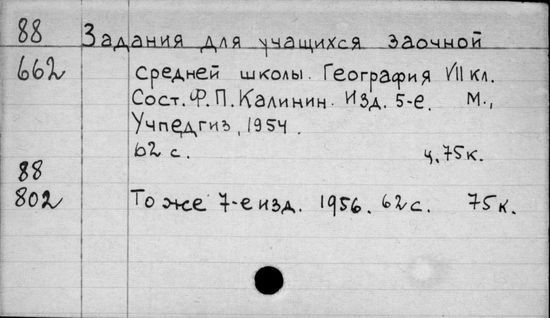 88 Задания для учащихся заочной
662 средней школы. География VII кл.
Сост. Ф. П. Калинин. Изд. 5-е. М.,
Учпедгиз, 1954.
62 с. ц. 75к.
88
802 То же 7-е изд. 1956. 62 с. 75 к.